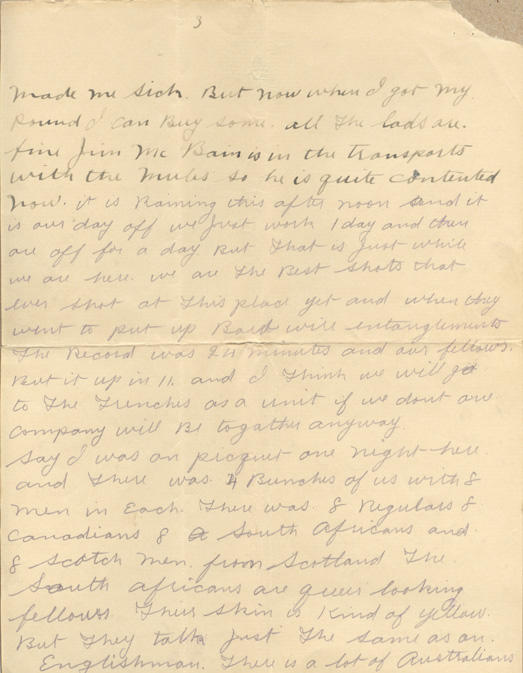 3
made me sick. But now when I got my
Pound I can Buy some. all The lads are.
fine Jim Mc Bain is in the transports
with the mules so he is quite contented
now. it is Raining this after noon and it
is our day off we Just work 1 day and then
are off for a day But That is Just while
we are here. we are The Best shots that
ever shot at This place yet and when they
went to put up Barb wire entanglements
The Record was 24 minutes and our fellows.
But it up in 11. and I Think we will get
to The Trenches as a unit if we dont our
Company will Be togather anyway.
Say I was on picquet one night here.
and There was 4 Bunches of us with 8
men in Each. There was 8 Regulars 8
Canadians 8 South Africans and
8 Scotch men. from Scotland The
South africans are queer looking
fellows. Their skin is Kind of yellow.
But They talk Just The same as an.
Englishman. There is a lot of Australians